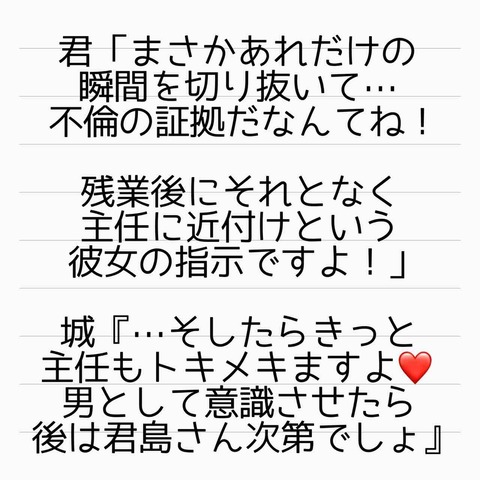 君「まさかあれだけの
瞬間を切り抜いて…
不倫の証拠だなんてね！
残業後にそれとなく
主任に近付けという
彼女の指示ですよ！」
城『…そしたらきっと
主任もトキメキますよ❤️
男として意識させたら
後は君島さん次第でしょ』